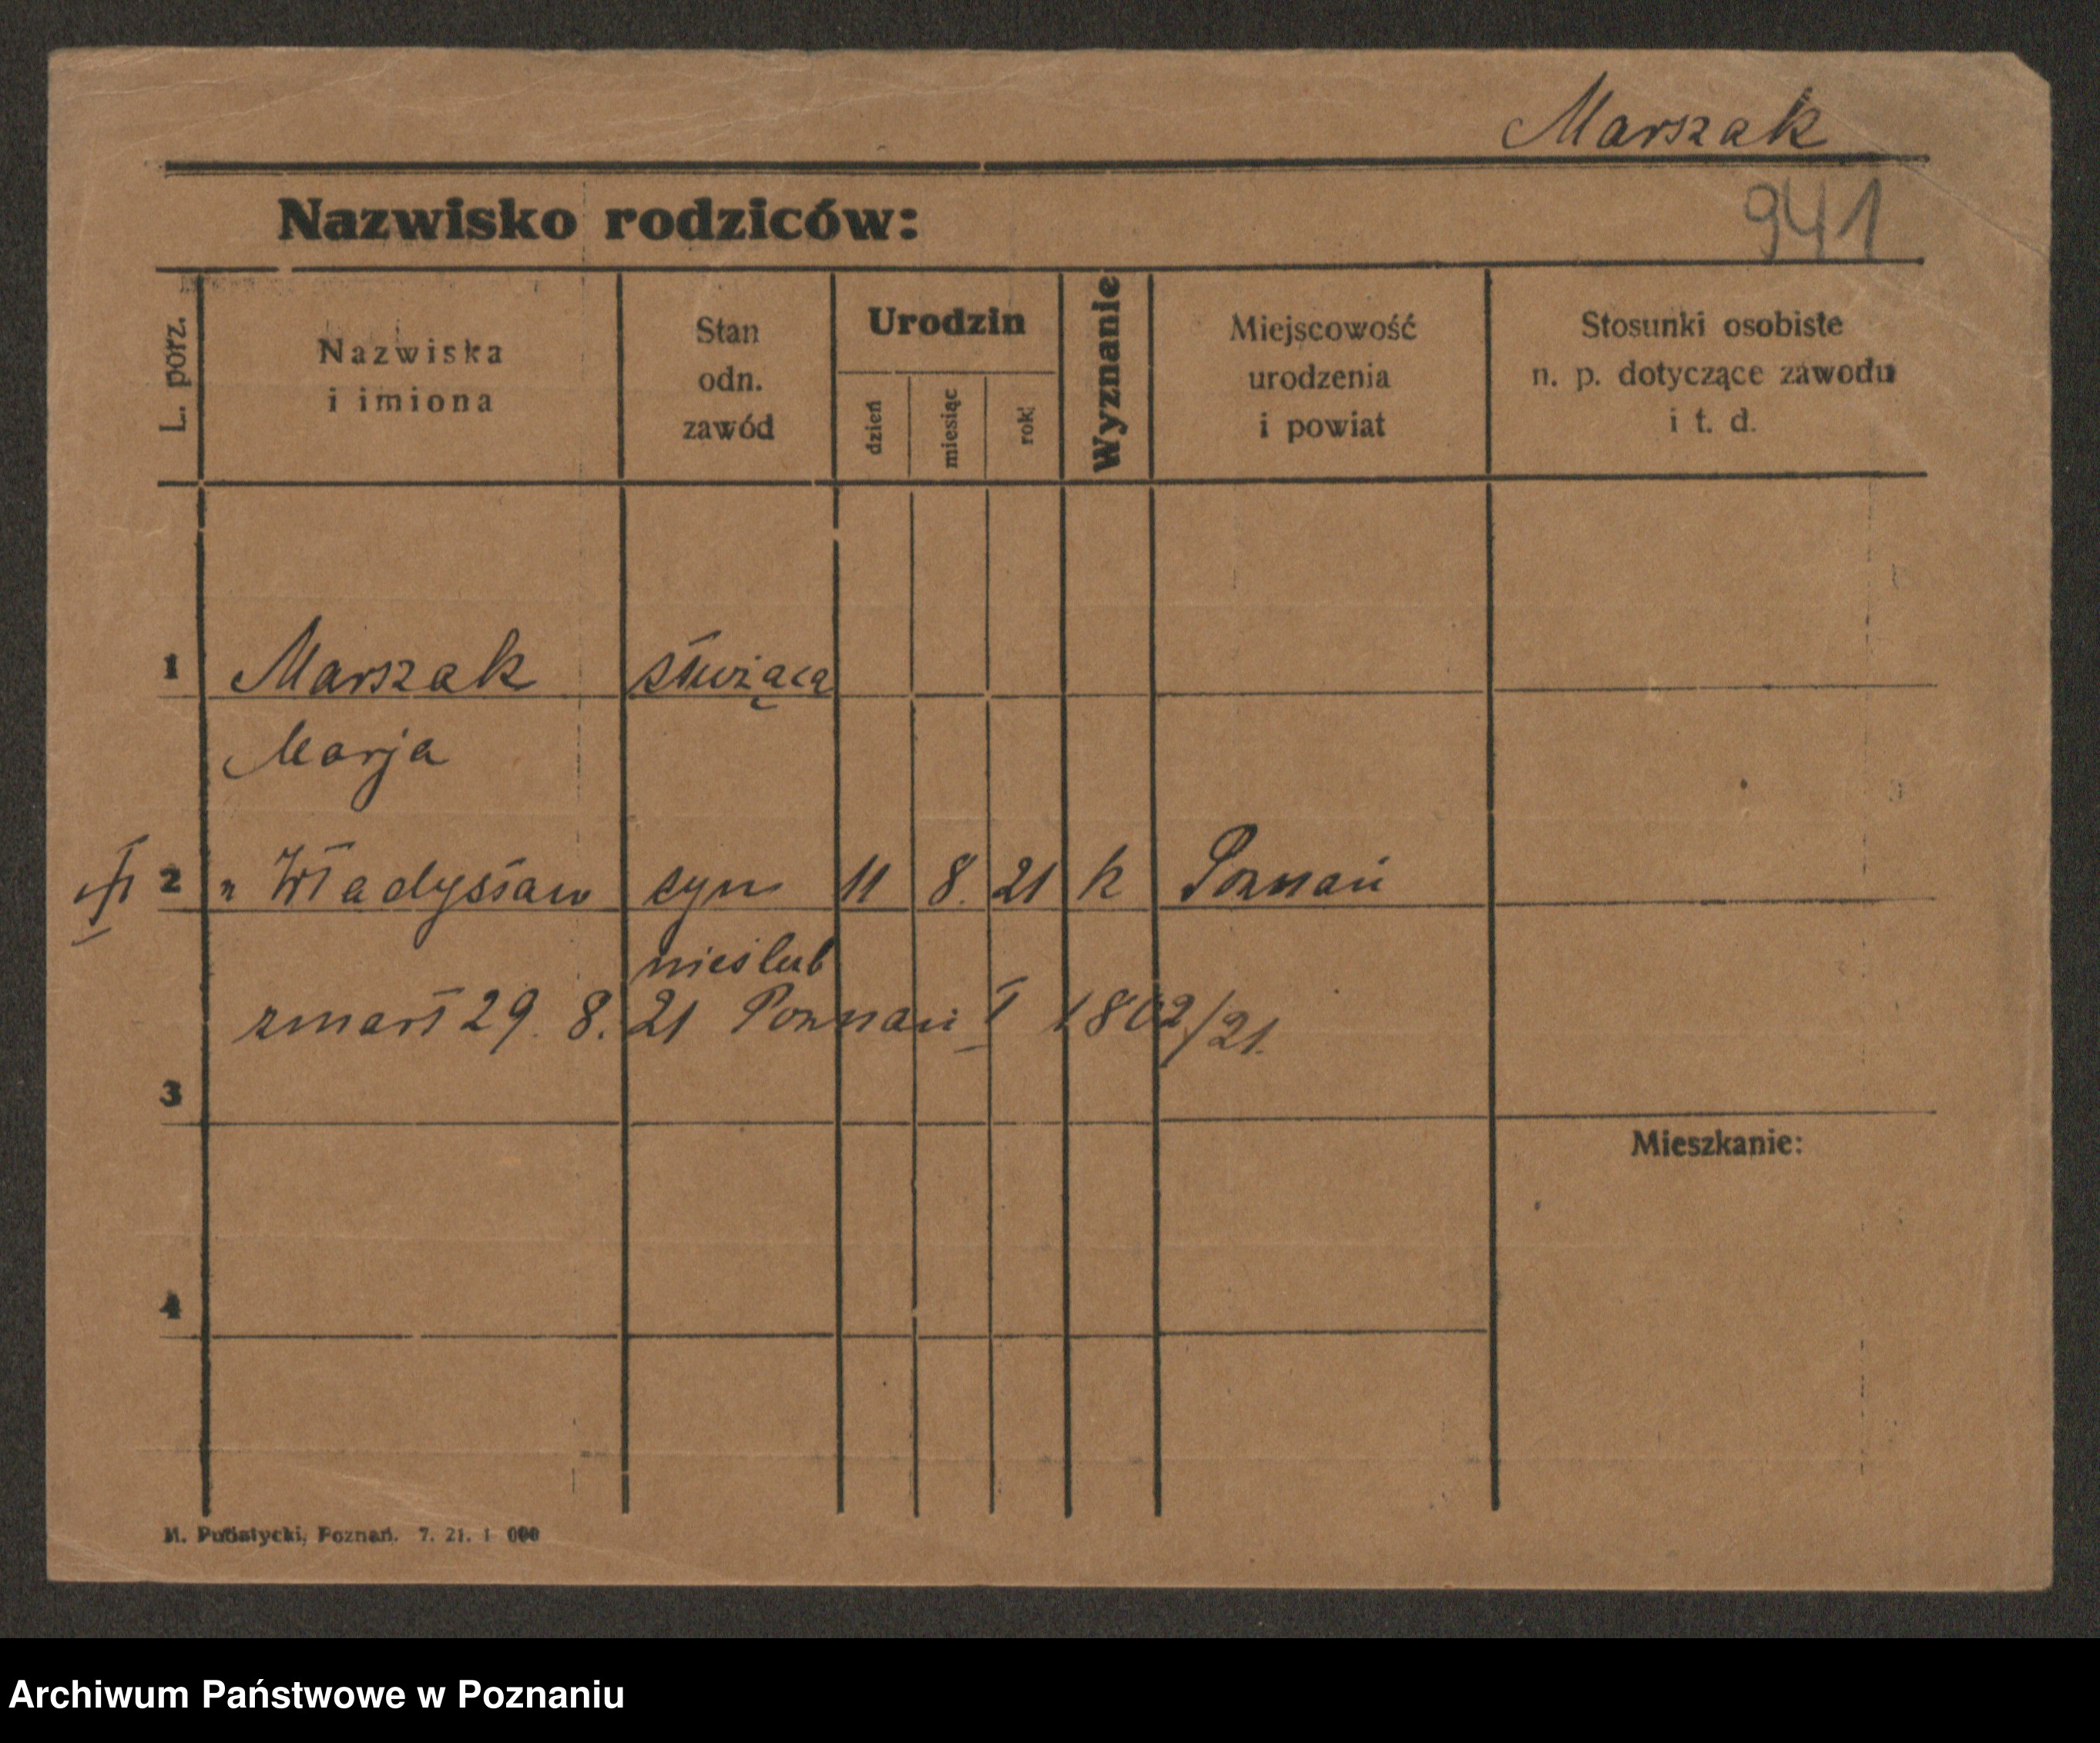 Marszak
Nazwisko rodziców:
941
L. porz.
Nazwiska
i imiona
Stan
odn.
zawód
Urodzin
dzień
miesiąc
rok
Wyznanie
Miejscowość
urodzenia
i powiat
Stosunki osobiste
n. p. dotyczące zawodu
i t. d.
1 Marszak służąca
Marja
2 " Władysław syn 11 8. 21 k Poznań
nieślub
zmarł 29. 8. 21 Poznań I 1802/21.
3
Mieszkanie:
4
M. Putiatycki, Poznań. 7. 21. 1 000
Archiwum Państwowe w Poznaniu